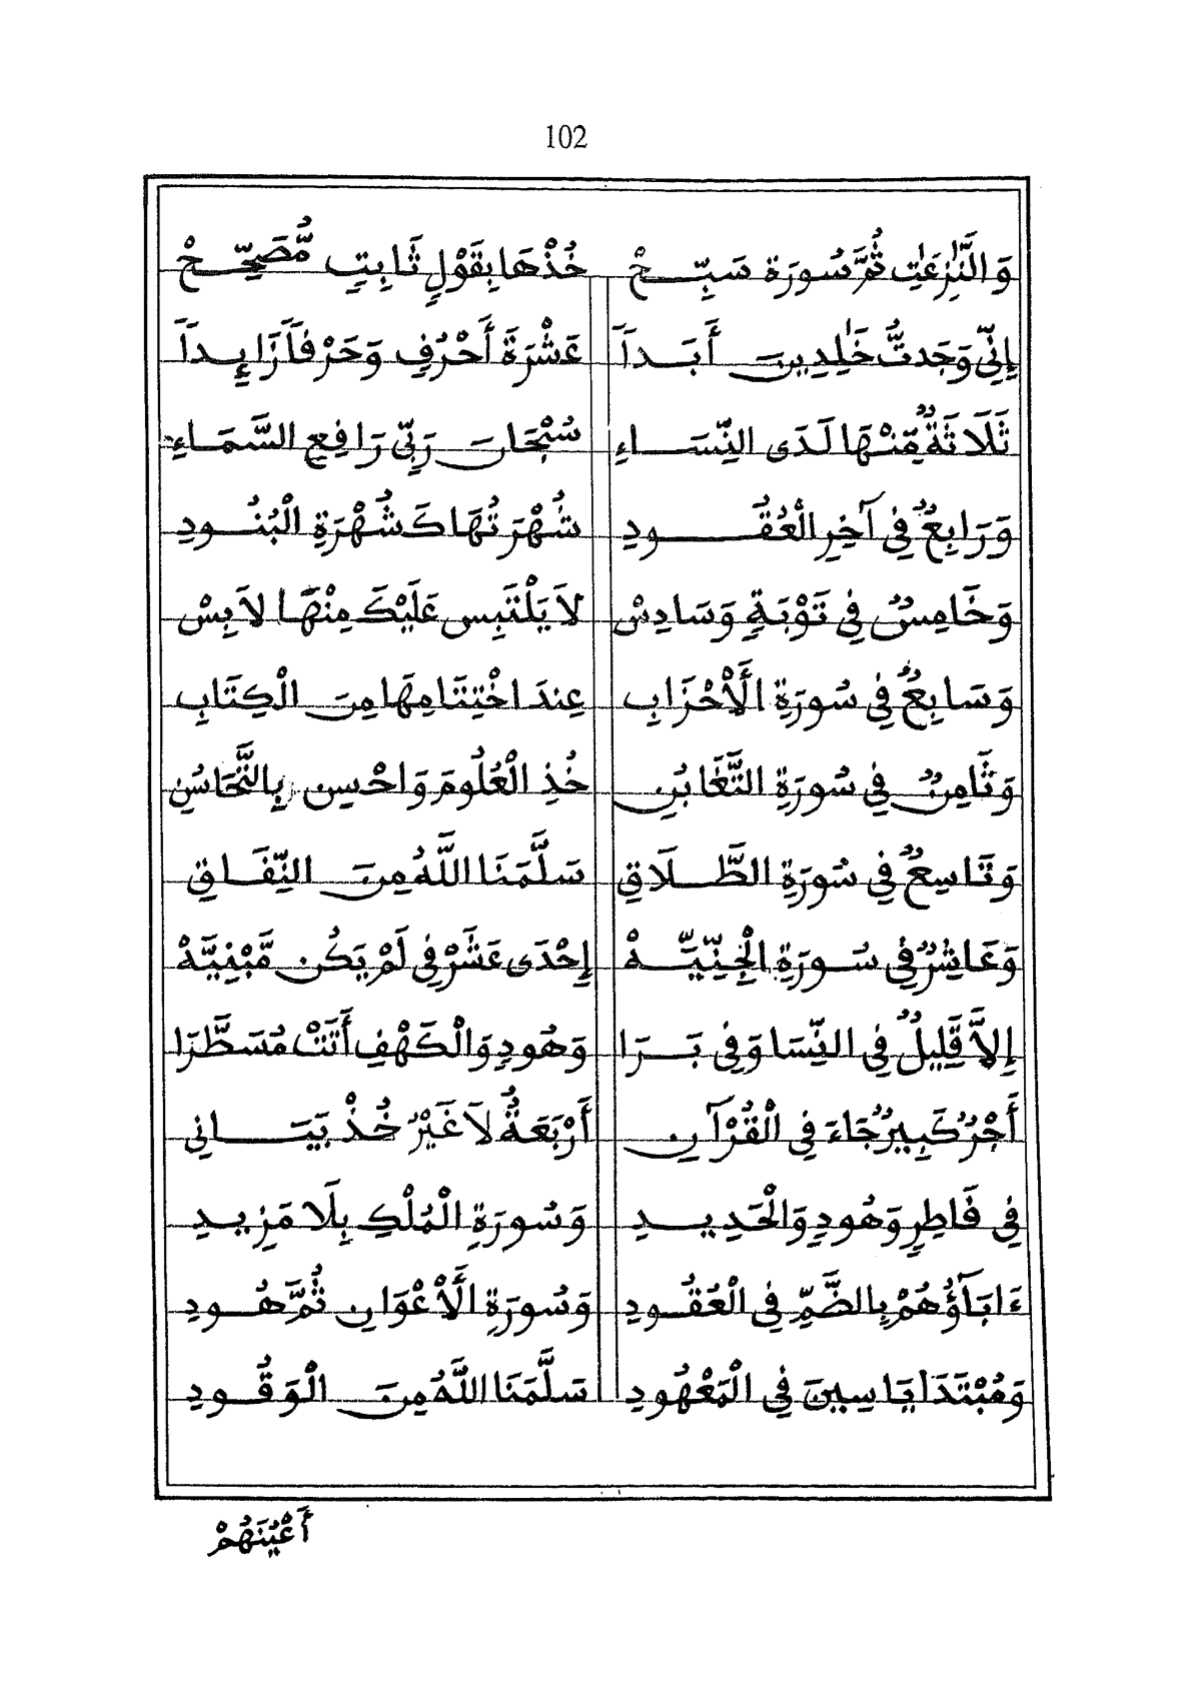 102
وَالنَّٰزِعَٰتِ ثُمَّ سُورَة سَبِّحْ خُذْهَا بِقَوْلٍ ثَابِتٍ مُّصَحِّحْ
إِنِّي وَجَدتُّ خَٰلِدِينَ أَبَداً عَشْرَةَ أَحْرُفٍ وَحَرْفاً زَايِداً
ثَلَاثَةٌ مِّنْهَا لَدَى النِّسَاءِ سُبْحَانَ رَبِّي رَافِعِ السَّمَاءِ
وَرَابِعٌ فِي آخِرِ الْعُقُودِ شُهْرَتُهَا كَشُهْرَةِ الْبُنُودِ
وَخَامِسٌ فِي تَوْبَةٍ وَسَادِسْ لاَ يَلْتَبِس عَلَيْكَ مِنْهَا لاَبِسْ
وَسَابِعٌ فِي سُورَةِ الْأَحْزَابِ عِندَ اخْتِتَامِهَا مِنَ الْكِتَابِ
وَثَامِنٌ فِي سُورَةِ التَّغَابُنِ خُذِ الْعُلُومَ وَاحْسِن بِالتَّحَاسُنِ
وَتَاسِعٌ فِي سُورَةِ الطَّلَاقِ سَلَّمَنَا اللَّهُ مِنَ النِّفَاقِ
وَعَاشِرٌ فِي سُورَةِ الْجِنِّيَّهْ إِحْدَى عَشَرْ فِي لَمْ يَكُن مَّبْنِيَّهْ
إِلاَّ قَلِيلٌ فِي النِّسَا وَفِي بَرَا وَهُودٍ وَالْكَهْفِ أَتَتْ مُسَطَّرَا
أَجْرٌ كَبِيرٌ جَاءَ فِي الْقُرْآنِ أَرْبَعَةٌ لاَ غَيْرُ خُذْ بَيَانِي
فِي فَاطِرٍ وَهُودٍ وَالْحَدِيدِ وَسُورَةِ الْمُلْكِ بِلَا مَزِيدِ
ءَابَآؤُهُمْ بِالضَّمِّ فِي الْعُقُودِ وَسُورَةِ الْأَعْوَانِ ثُمَّ هُودِ
وَمُبْتَدَا يَاسِينَ فِي الْمَعْهُودِ سَلَّمَنَا اللَّهُ مِنَ الْوَقُودِ
أَعْيُنَهُمْ